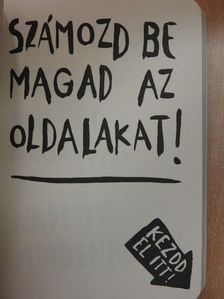 SZÁMOZD BE
MAGAD AZ
OLDALAKAT!
KEZDD
EL ITT!